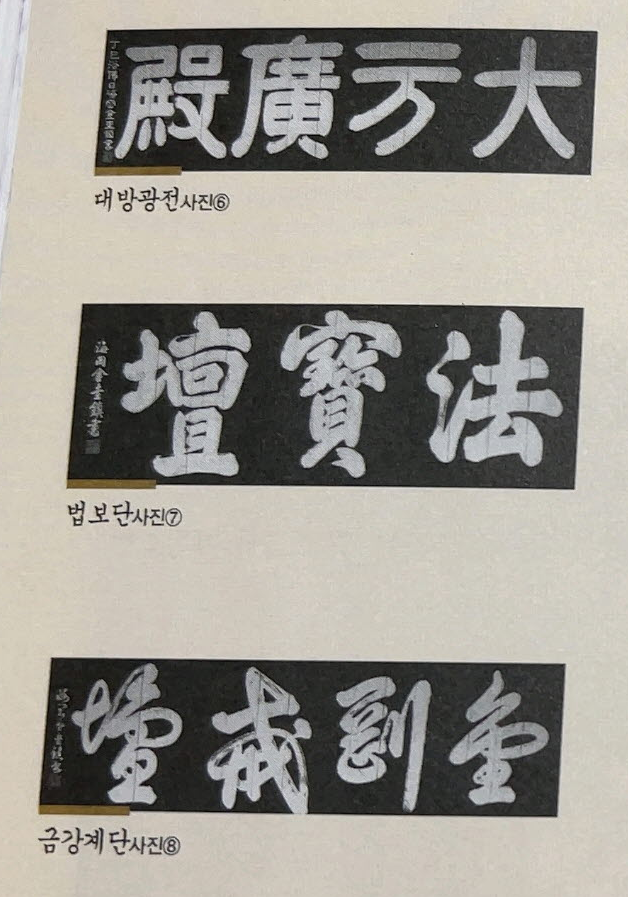 大方廣殿
대방광전사진⑥
法寶壇
海岡金圭鎭書
법보단사진⑦
金剛戒壇
금강계단사진⑧